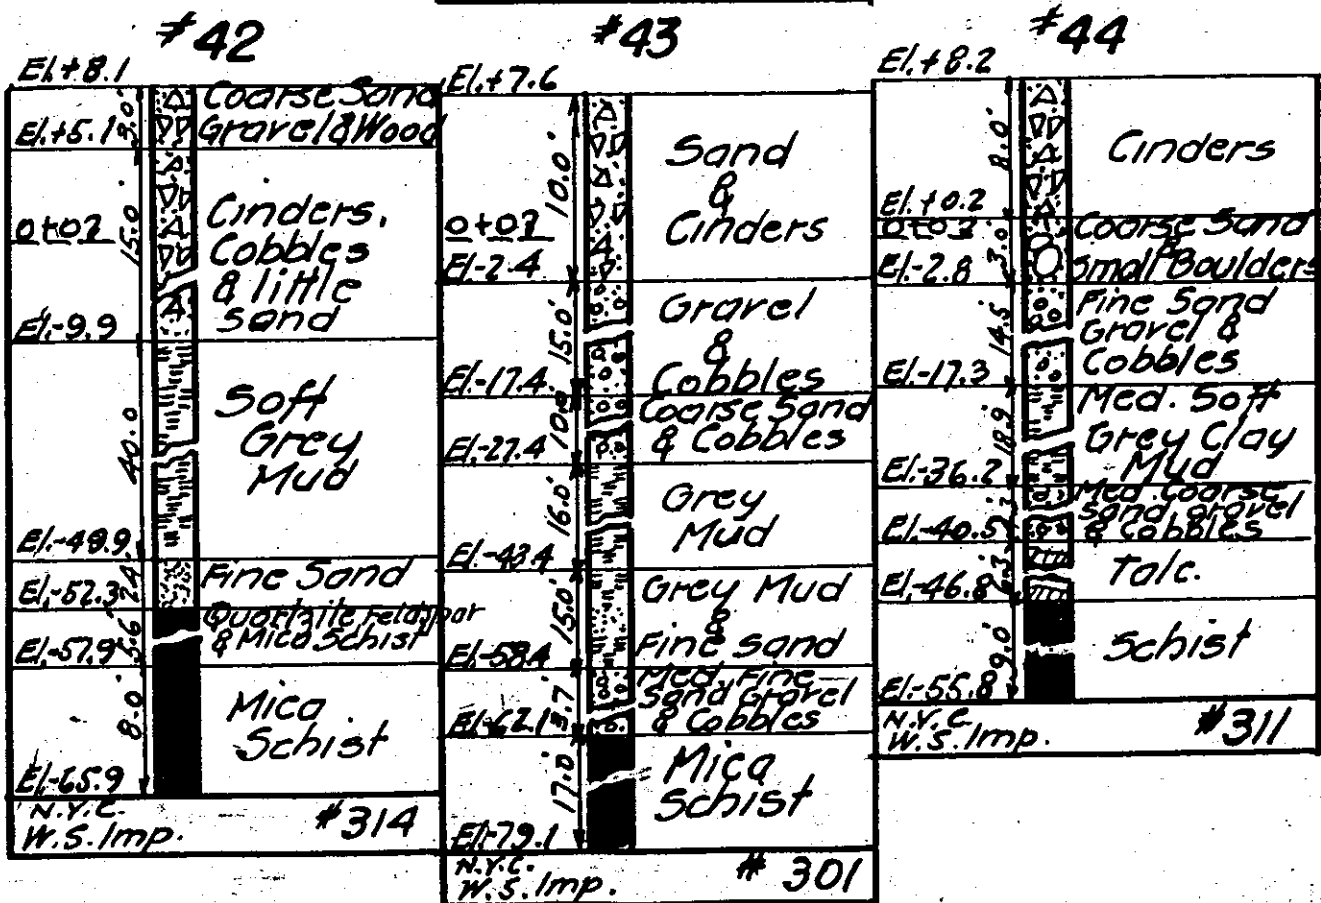 #42
El.+8.1
3.0'
Coarse Sand
Gravel & Wood
El.+5.1
15.0'
Cinders,
Cobbles
& little
Sand
0+02
El.-9.9
40.0
Soft
Grey
Mud
El.-49.9
2.4'
Fine Sand
El.-52.3
5.6'
Quartzite Feldspar
& Mica Schist
El.-57.9
8.0'
Mica
Schist
El.-65.9
N.Y.C.
W.S. Imp.
#314
#43
El.+7.6
10.0'
Sand
&
Cinders
0+02
El.-2.4
15.0'
Gravel
&
Cobbles
El.-17.4
10.0'
Coarse Sand
& Cobbles
El.-27.4
16.0'
Grey
Mud
El.-43.4
15.0'
Grey Mud
&
Fine sand
El.-58.4
3.7'
Med. Fine
Sand Gravel
& Cobbles
El.-62.1
17.0'
Mica
Schist
El.-79.1
N.Y.C.
W.S. Imp.
#301
#44
El.+8.2
8.0'
Cinders
El.+0.2
0+02
3.0'
Coarse Sand
&
Small Boulders
El.-2.8
14.5'
Fine Sand
Gravel &
Cobbles
El.-17.3
18.9'
Med. Soft
Grey Clay
Mud
El.-36.2
Med. Coarse
sand, gravel
& Cobbles
El.-40.5
6.3'
Talc.
El.-46.8
9.0'
Schist
El.-55.8
N.Y.C.
W.S. Imp.
#311